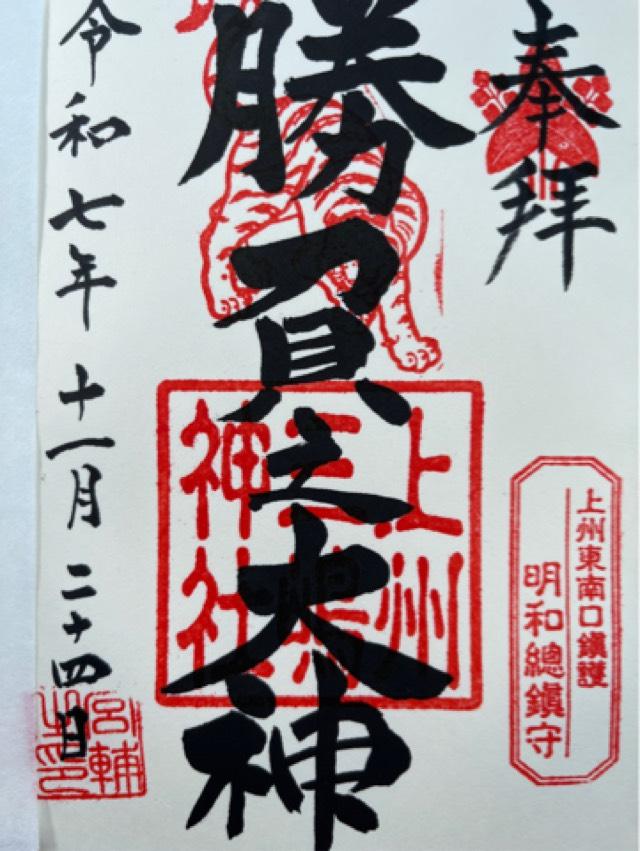 奉拝
上州東南口鎮護
明和總鎮守
上州三嶋神社
勝負之大神
令和七年 十一月 二十四日
宮輔之印